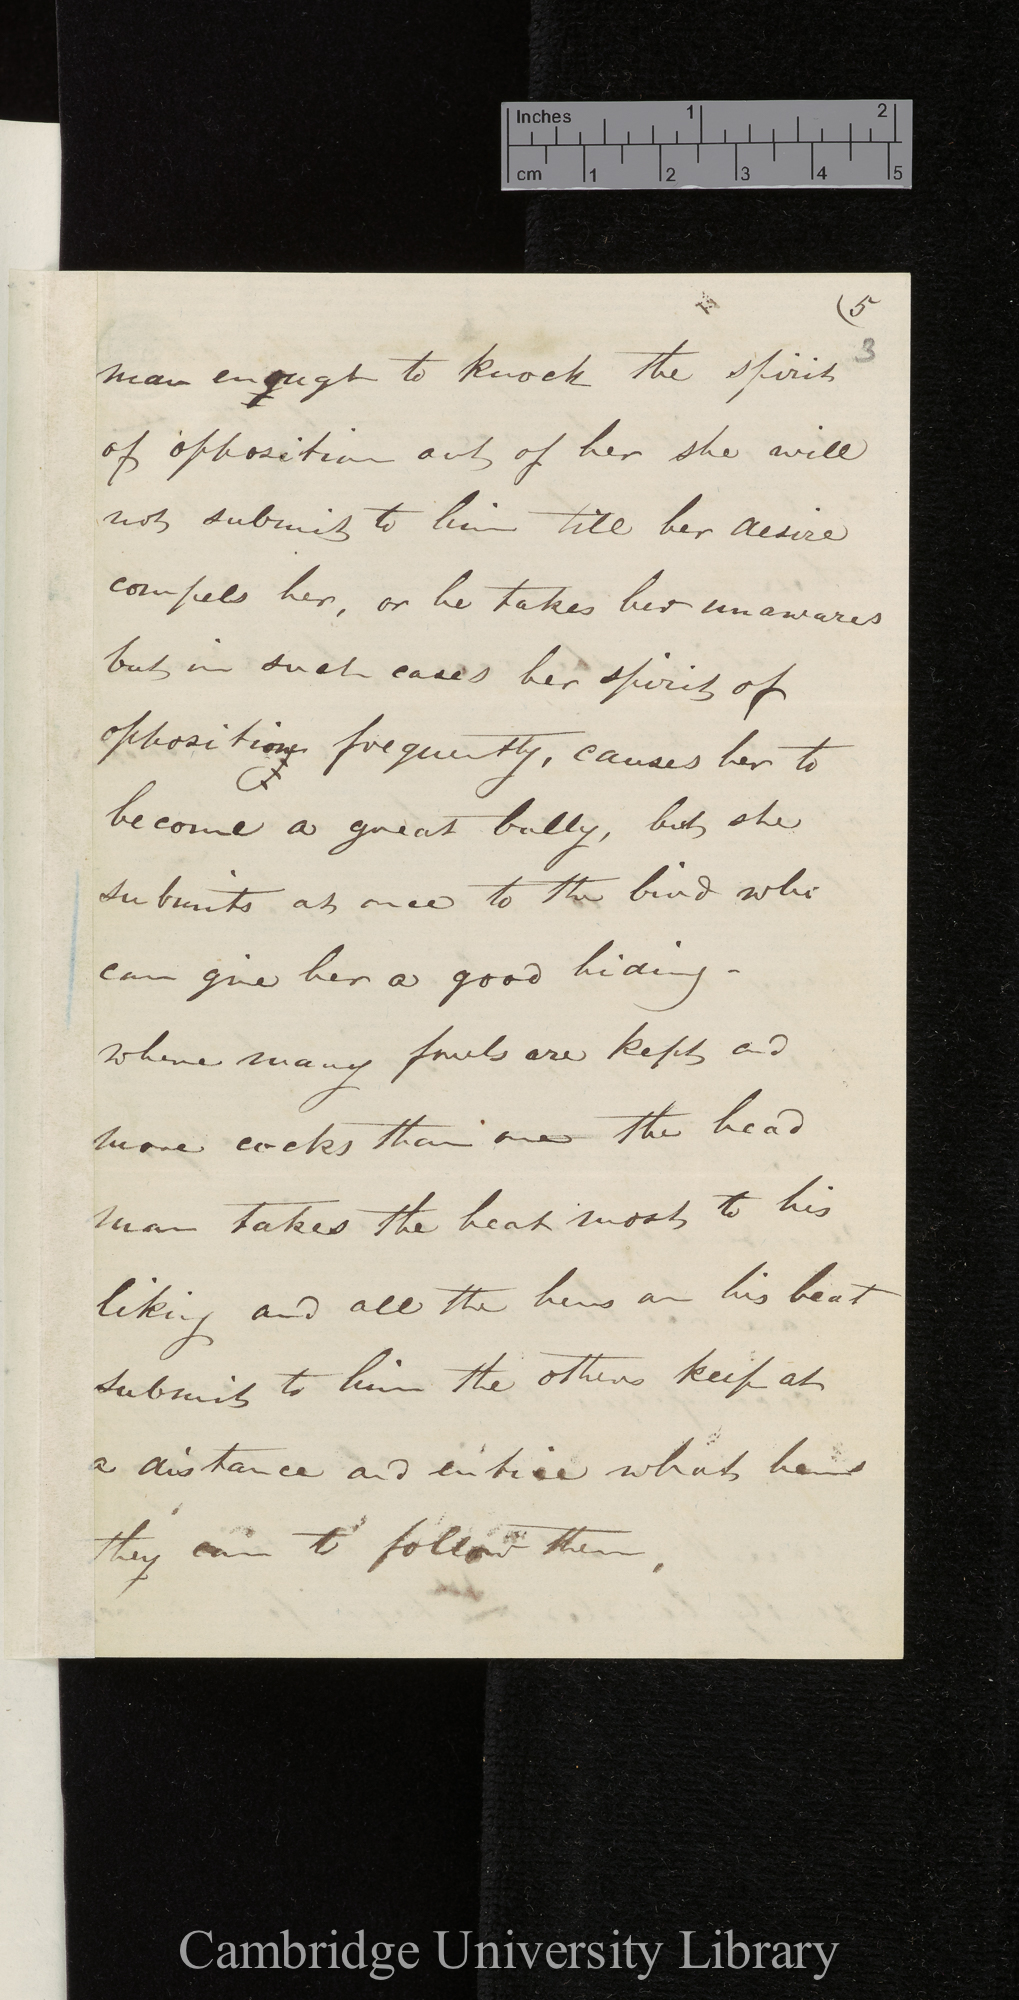 Inches 1 2
cm 1 2 3 4 5
(5
3
man enough to knock the spirit
of opposition out of her she will
not submit to him till her desire
compels her, or he takes her unawares
but in such cases her spirit of
opposition frequently, causes her to
become a great bully, but she
submits at once to the bird who
can give her a good hiding -
where many fowls are kept and
more cocks than one the head
man takes the beat most to his
liking and all the hens on his beat
submit to him the others keep at
a distance and entice what hens
they can to follow them,
Cambridge University Library